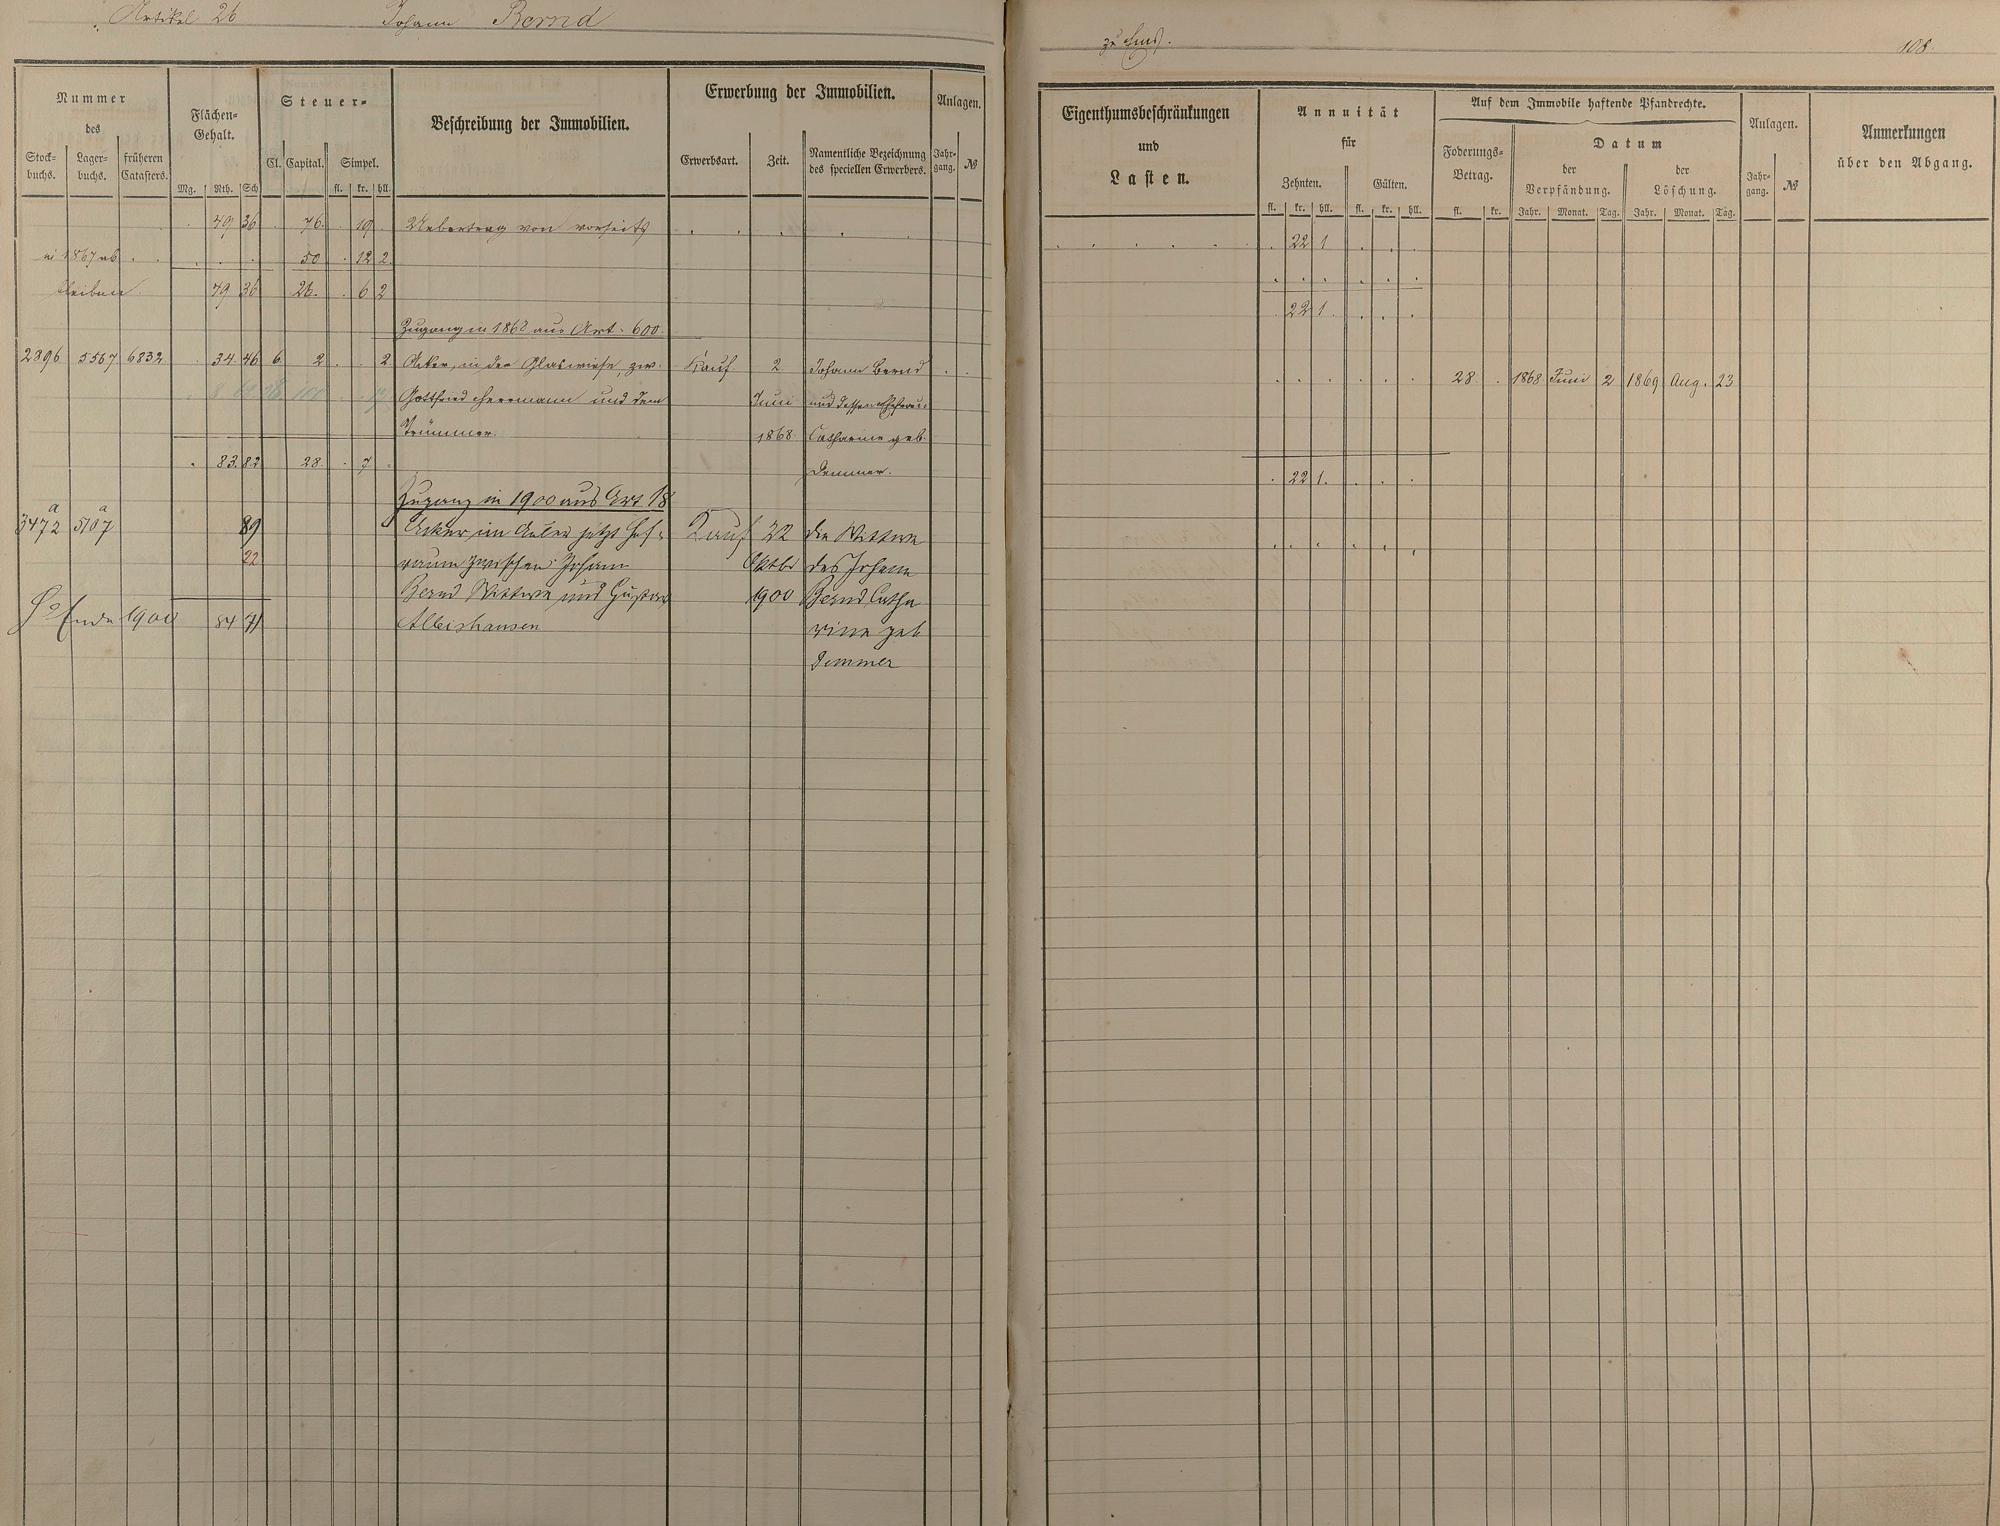 Artikel 26 Johann Bernd
zu Ems. 108.
Nummer
des
Stock-
buchs.
Lager-
buchs.
früheren
Catasters.
Flächen-
Gehalt.
Mg. Rth. Sch
Steuer-
Cl. Capital. Simpel.
fl. kr. hll.
Beschreibung der Immobilien.
Erwerbung der Immobilien.
Erwerbsart. Zeit.
Namentliche Bezeichnung
des speciellen Erwerbers.
Anlagen.
Jahr-
gang.
№
49 36 76. 19 Uebertrag von vorseits
in 1867 ab 50 12 2
bleiben. 49 36 26. 6 2
Zugang in 1868 aus Art. 600.
2896 5567 6832 34. 46 6 2 2 Acker, in der Glaswiese, zw. Kauf. 2. Johann Bernd
Gottfried Herrmann und dem Juni und dessen Ehefrau
Trümmer. 1868. Catharine geb.
83. 82 28. 7 Demmer.
Zugang in 1900 aus Art 18
3472 a 5107 a 89 Acker im Aeler jetzt Hof- Kauf 22 die Wittwe
22 raum zwischen Johann Oktbr des Johann
Bernd Wittwe und Gustav 1900 Bernd Catha
Ende 1900 84 71 Albishausen rine geb
Demmer
Eigenthumsbeschränkungen
und
Lasten.
Annuität
für
Zehnten. Gülten.
fl. kr. hll. fl. kr. hll.
Auf dem Immobile haftende Pfandrechte.
Foderungs-
Betrag.
fl. kr.
Datum
der
Verpfändung.
der
Löschung.
Jahr. Monat. Tag. Jahr. Monat. Tag.
Anlagen.
Jahr-
gang.
№
Anmerkungen
über den Abgang.
22 1
22 1
28. 1868 Juni 2 1869 Aug. 23
22 1.